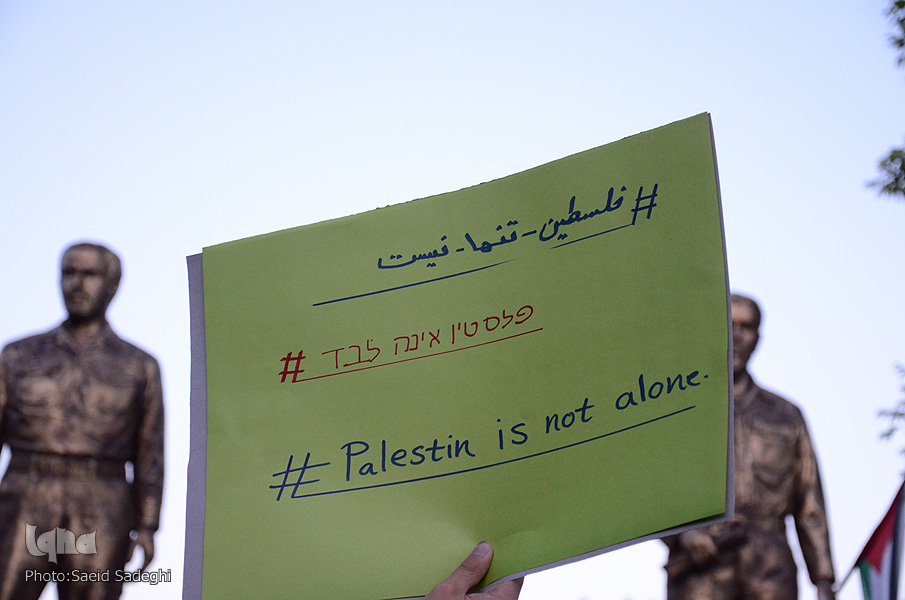 #فلسطین-تنها-نیست
פלסטין אינה לבד #
# Palestin is not alone.
iqna
Photo:Saeid Sadeghi